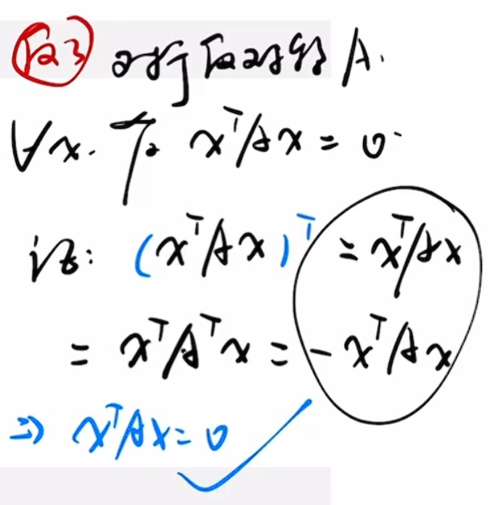 反3 对于反对称 A.
∀x. 有 xᵀAx = 0.
证: (xᵀAx)ᵀ = xᵀAx
= xᵀAᵀx = -xᵀAx
⇒ xᵀAx = 0